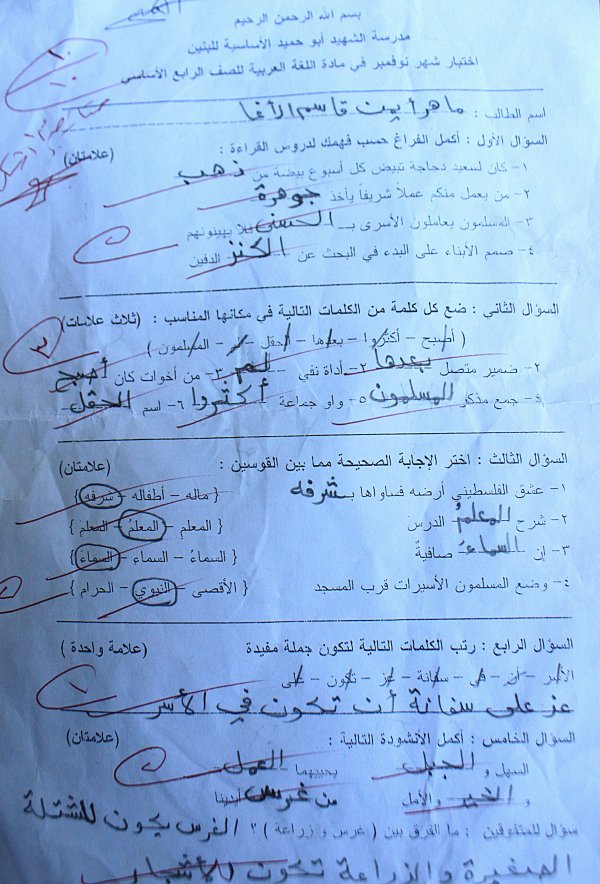 بسم الله الرحمن الرحيم
مدرسة الشهيد أبو حميد الأساسية للبنين
اختبار شهر نوفمبر في مادة اللغة العربية للصف الرابع الأساسي
١٠
١٠
اسم الطالب : ماهر أيمن قاسم الأغا
السؤال الأول : أكمل الفراغ حسب فهمك لدروس القراءة : (علامتان)
١- كان لسعيد دجاجة تبيض كل أسبوع بيضة من ذهب
٢- من يعمل منكم عملاً شريفاً يأخذ جوهرة
٣- المسلمون يعاملون الأسرى بـ الحسنى فلا يهينونهم
٤- صمم الأبناء على البدء في البحث عن الكنز الدفين
السؤال الثاني : ضع كل كلمة من الكلمات التالية في مكانها المناسب : (ثلاث علامات)
( أصبح – أكثروا – بعدها – الحقل – لم – المسلمون )
٢- ضمير متصل بعدها ٢- أداة نفي لم ٣- من أخوات كان أصبح
٤- جمع مذكر المسلمون ٥- واو جماعة أكثروا ٦- اسم الحقل
السؤال الثالث : اختر الإجابة الصحيحة مما بين القوسين : (علامتان)
١- عشق الفلسطيني أرضه فساواها بـ شرفه { ماله – أطفاله – شرفه }
٢- شرح المعلمُ الدرسَ { المعلم – المعلمُ – المعلم }
٣- إن السماءَ صافيةٌ { السماءُ – السماء – السماءَ }
٤- وضع المسلمون الأسيرات قرب المسجد { الأقصى – النبوي – الحرام }
السؤال الرابع : رتب الكلمات التالية لتكون جملة مفيدة (علامة واحدة )
الأسر – أن – في – سفانة – عز – تكون – على
عز على سفانة أن تكون في الأسر
السؤال الخامس : أكمل الأنشودة التالية : (علامتان)
السهل و الجبل يحييهما العمل
و الخير والأمل من غرس أيدينا
سؤال للمتفوقين : ما الفرق بين ( غرس و زراعة ) ؟ الغرس يكون للشتلة
الصغيرة والزراعة تكون للأشجار